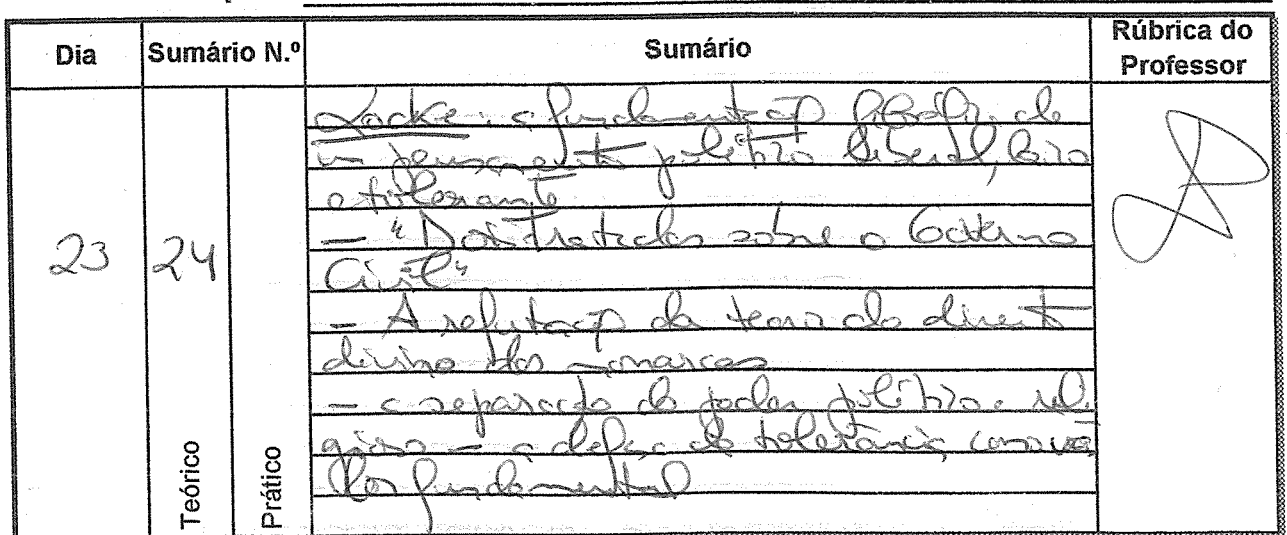 Dia Sumário N.º Sumário Rúbrica do Professor
23 24 Teórico Prático
Locke: a fundamentação filosófica de
um pensamento político liberal, laico
e tolerante
— "Dois tratados sobre o Governo
Civil"
— A refutação da teoria do direito
divino dos monarcas
— a separação do poder político e reli
gioso — a defesa da tolerância como va
lor fundamental